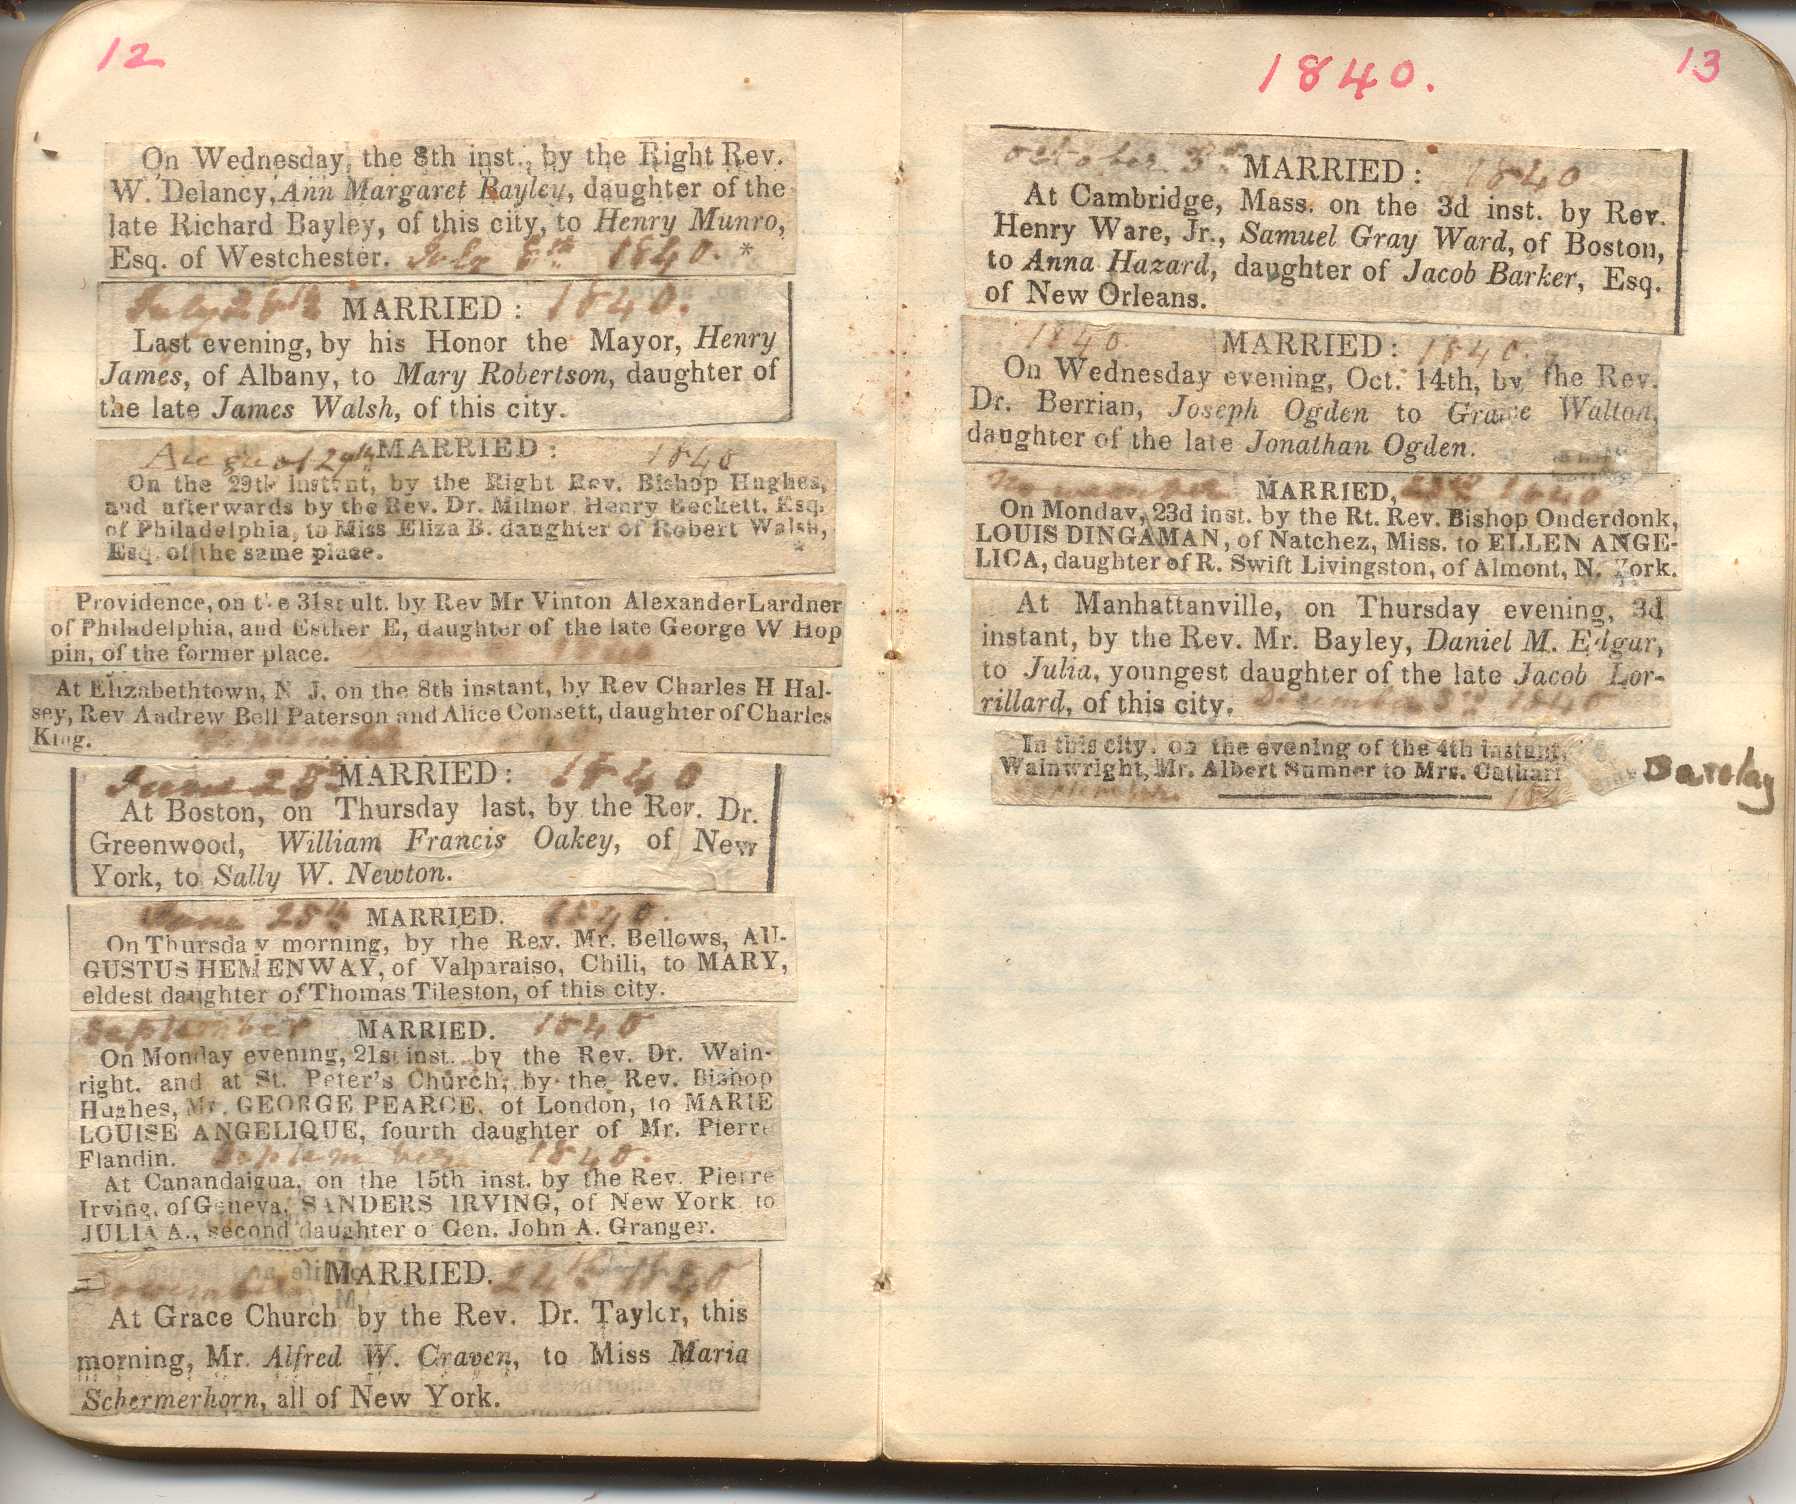 12
On Wednesday, the 8th inst., by the Right Rev.
W. Delancy, Ann Margaret Bayley, daughter of the
late Richard Bayley, of this city, to Henry Munro,
Esq. of Westchester. July 8th 1840. *
July 28th MARRIED: 1840.
Last evening, by his Honor the Mayor, Henry
James, of Albany, to Mary Robertson, daughter of
the late James Walsh, of this city.
August 29th MARRIED: 1840
On the 29th instant, by the Right Rev. Bishop Hughes,
and afterwards by the Rev. Dr. Milnor, Henry Beckett, Esq.
of Philadelphia, to Miss Eliza B. daughter of Robert Walsh,
Esq. of the same place. *
Providence, on the 31st ult. by Rev Mr Vinton Alexander Lardner
of Philadelphia, and Esther E, daughter of the late George W Hop
pin, of the former place.
At Elizabethtown, N J, on the 8th instant, by Rev Charles H Hal-
sey, Rev Andrew Bell Paterson and Alice Consett, daughter of Charles
King.
June 25th MARRIED: 1840
At Boston, on Thursday last, by the Rev. Dr.
Greenwood, William Francis Oakey, of New
York, to Sally W. Newton.
June 25th MARRIED. 1840.
On Thursday morning, by the Rev. Mr. Bellows, AU-
GUSTUS HEMENWAY, of Valparaiso, Chili, to MARY,
eldest daughter of Thomas Tileston, of this city.
September MARRIED. 1840
On Monday evening, 21st inst. by the Rev. Dr. Wain-
right, and at St. Peter's Church, by the Rev. Bishop
Hughes, Mr. GEORGE PEARCE, of London, to MARIE
LOUISE ANGELIQUE, fourth daughter of Mr. Pierre
Flandin. September 1840.
At Canandaigua, on the 15th inst. by the Rev. Pierre
Irving, of Geneva, SANDERS IRVING, of New York to
JULIA A., second daughter o Gen. John A. Granger.
November MARRIED. 24th 1840
At Grace Church by the Rev. Dr. Taylor, this
morning, Mr. Alfred W. Craven, to Miss Maria
Schermerhorn, all of New York.
1840. 13
October 3d. MARRIED: 1840
At Cambridge, Mass. on the 3d inst. by Rev.
Henry Ware, Jr., Samuel Gray Ward, of Boston,
to Anna Hazard, daughter of Jacob Barker, Esq.
of New Orleans.
1840 MARRIED: 1840.
On Wednesday evening, Oct. 14th, by the Rev.
Dr. Berrian, Joseph Ogden to Grace Walton,
daughter of the late Jonathan Ogden.
November MARRIED, 23rd 1840
On Monday, 23d inst. by the Rt. Rev. Bishop Onderdonk,
LOUIS DINGAMAN, of Natchez, Miss. to ELLEN ANGE-
LICA, daughter of R. Swift Livingston, of Almont, N. York.
At Manhattanville, on Thursday evening, 3d
instant, by the Rev. Mr. Bayley, Daniel M. Edgar,
to Julia, youngest daughter of the late Jacob Lor-
rillard, of this city. December 3rd 1840
In this city, on the evening of the 4th instant,
Wainwright, Mr. Albert Sumner to Mrs. Cathari Barclay
September 184